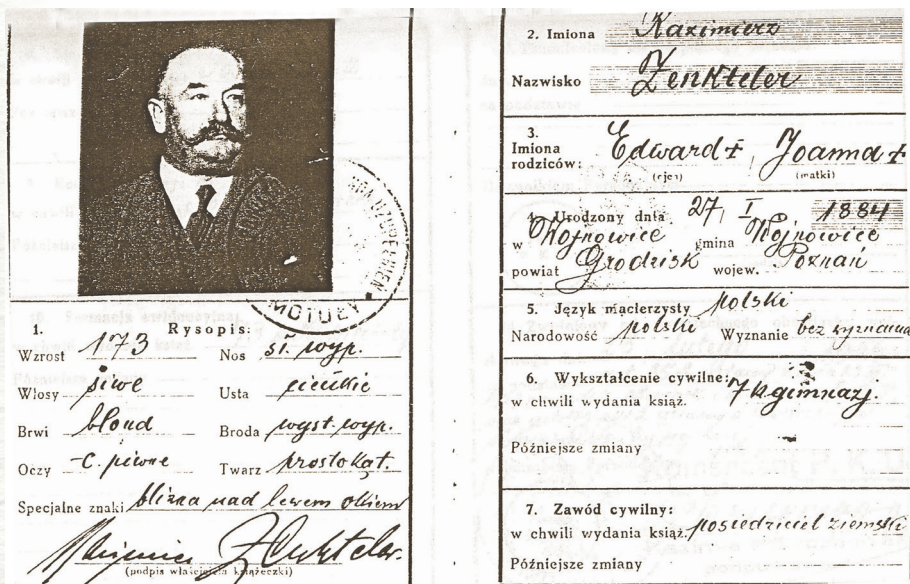 MOTUŁY
1. Rysopis:
Wzrost 173 Nos śr. wyp.
Włosy siwe Usta cieńkie
Brwi blond Broda wyst. wyp.
Oczy c. piwne Twarz prostokąt.
Specjalne znaki blizna nad lewem okiem
Zenkteler
(podpis właściciela książeczki)
2. Imiona Kazimierz
Nazwisko Zenkteler
3.
Imiona
rodziców: Edward + , Joanna +
(ojca) (matki)
4. Urodzony dnia 27, I 1884
w Wojnowice gmina Wojnowice
powiat Grodzisk wojew. Poznań
5. Język macierzysty polski
Narodowość polski Wyznanie bez wyznania
6. Wykształcenie cywilne:
w chwili wydania książ. 7 kl gimnazj.
Późniejsze zmiany
7. Zawód cywilny:
w chwili wydania książ. posiedziciel ziemski
Późniejsze zmiany